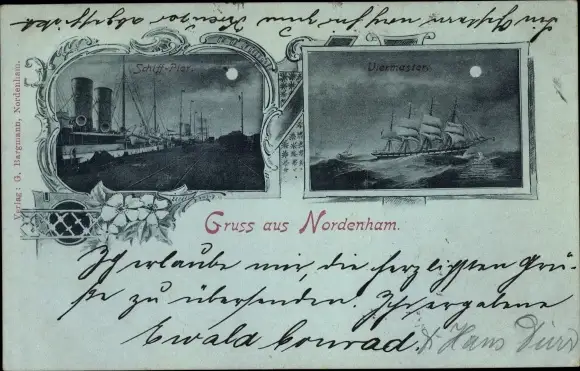 Schiff-Pier.
Viermaster.
Verlag: G. Bargmann, Nordenham.
Gruss aus Nordenham.
Ich erlaube mir, die herzlichsten Grü-
ße zu übersenden. Ihr ergebene
Ewald Conrad. & Hans